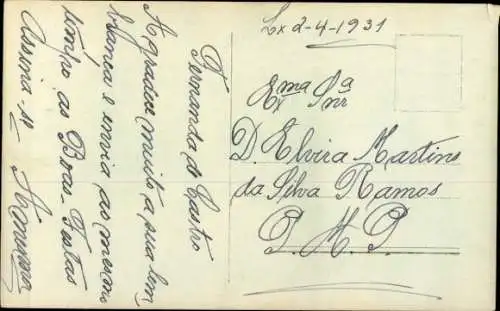 Lx 2-4-1931
Exma Snrª
D. Elvira Martins
da Silva Ramos
P. M. P.
Fernanda de Castro
Agradece muito a sua lem
brança e envia ao mesmo
tempo as Boas-Festas
Assina-se